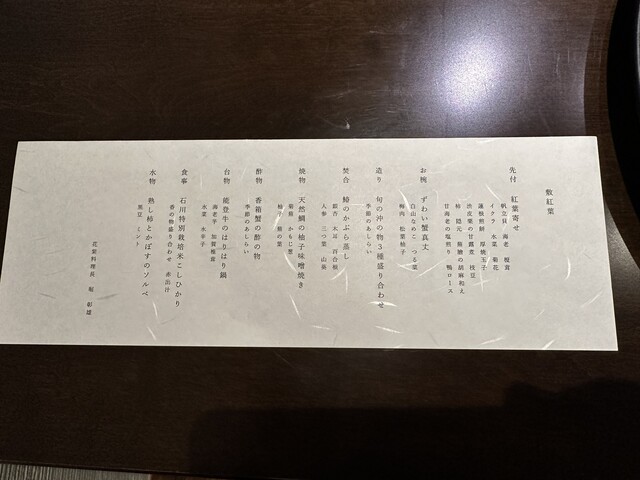 敷紅葉
先付 紅葉寄せ
帆立貝 海老 椎茸
イクラ 水菜 菊花
蓮根煎餅 厚焼玉子
渋皮栗の甘露煮 枝豆
柿 隠元 胡麻和え
甘海老の塩煎り 鴨ロース
お椀 ずわい蟹真丈
白山なめこ つる菜
梅肉 松葉柚子
造り 旬の沖の物3種盛り合わせ
季節のあしらい
焚合 鰆のかぶら蒸し
銀杏 木耳 百合根
人参 三つ葉 山葵
焼物 天然鯛の柚子味噌焼き
菊蕪 かもじ葱
酢物 香箱蟹の酢の物
季節のあしらい
台物 能登牛のはりはり鍋
海老芋 加賀椎茸
水菜 水辛子
食事 石川特別栽培米こしひかり
香の物盛り合わせ 赤出汁
水物 熟し柿とかぼすのソルベ
黒豆 ミント
花紫料理長 堀 彰雄